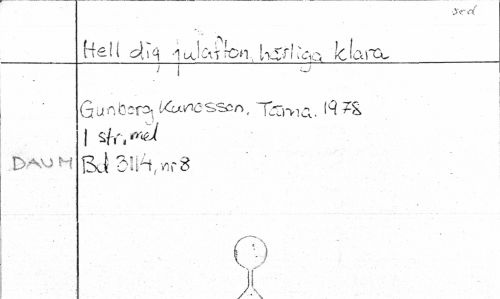 sed
Hell dig julafton, härliga klara
Gunborg Kunosson. Tärna. 1978
1 str, mel
DAUM Bd 3114, nr 8